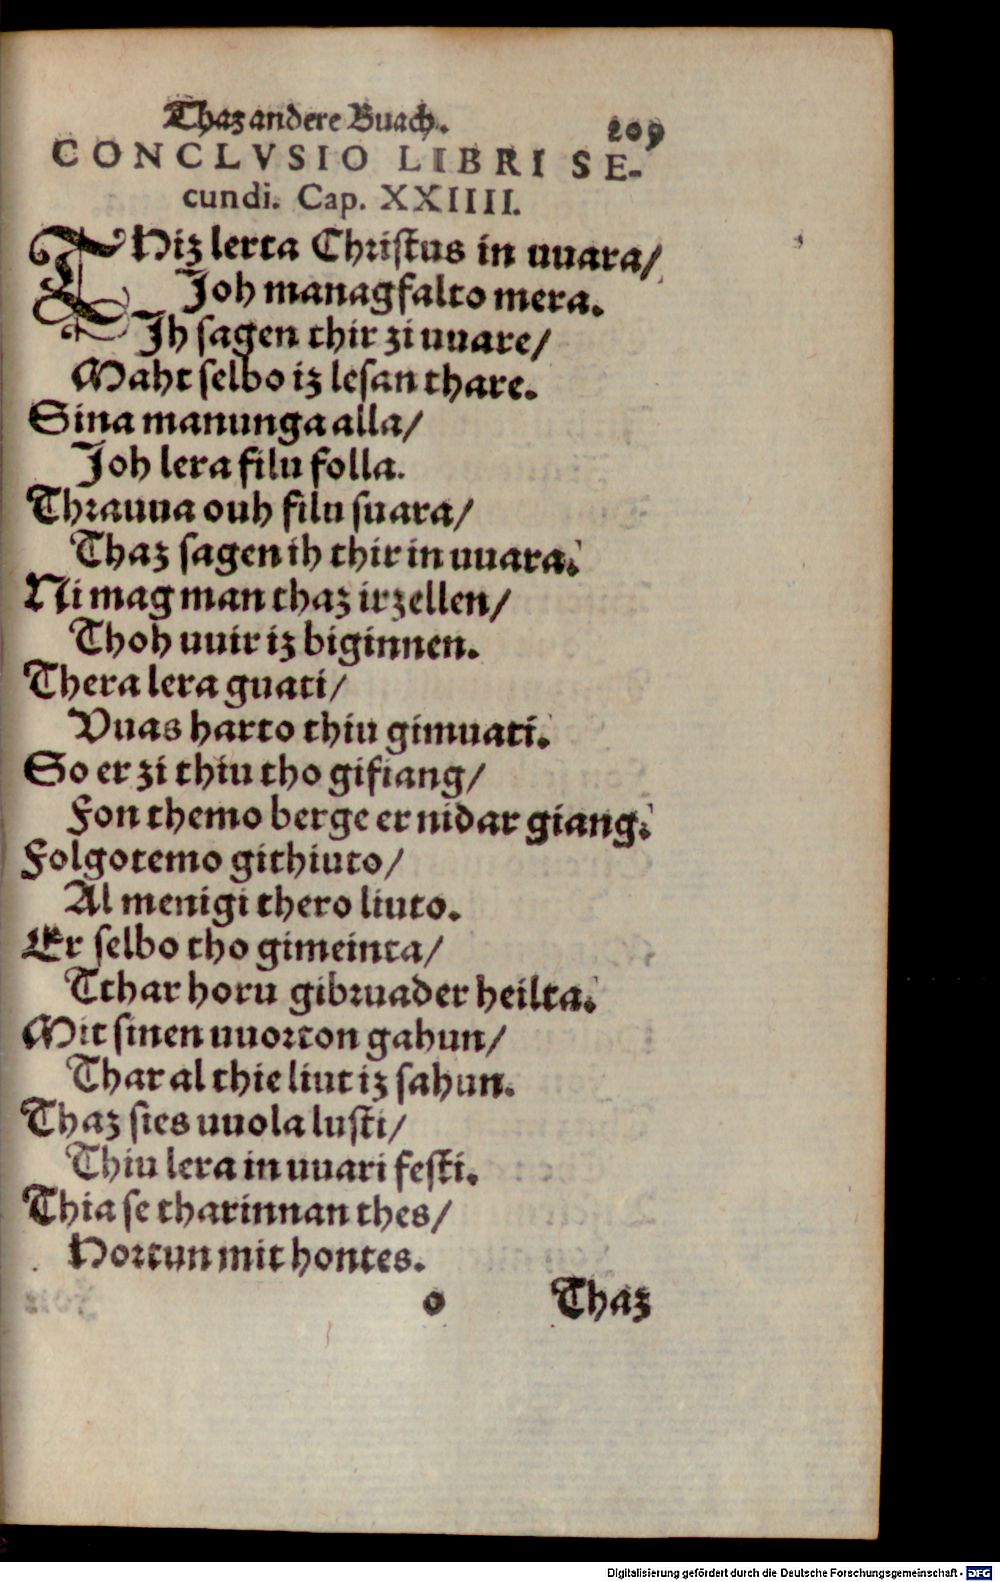 Thaz andere Buach. 209
CONCLVSIO LIBRI SE-
cundi. Cap. XXIIII.
THiz lerta Christus in uuara/
Joh managfalto mera.
Jh sagen thir zi uuare/
Maht selbo iz lesan thare.
Sina manunga alla/
Joh lera filu folla.
Thrauua ouh filu suara/
Thaz sagen ih thir in uuara.
Ni mag man thaz irzellen/
Thoh uuir iz biginnen.
Thera lera guati/
Vuas harto thiu gimuati.
So er zi thiu tho gifiang/
Fon themo berge er nidar giang.
Folgotemo githiuto/
Al menigi thero liuto.
Er selbo tho gimeinta/
Tthar horu gibruader heilta.
Mit sinen uuorton gahun/
Thar al thie liut iz sahun.
Thaz sies uuola lusti/
Thiu lera in uuari festi.
Thia se tharinnan thes/
Hortun mit hontes.
o Thaz
Digitalisierung gefördert durch die Deutsche Forschungsgemeinschaft - DFG